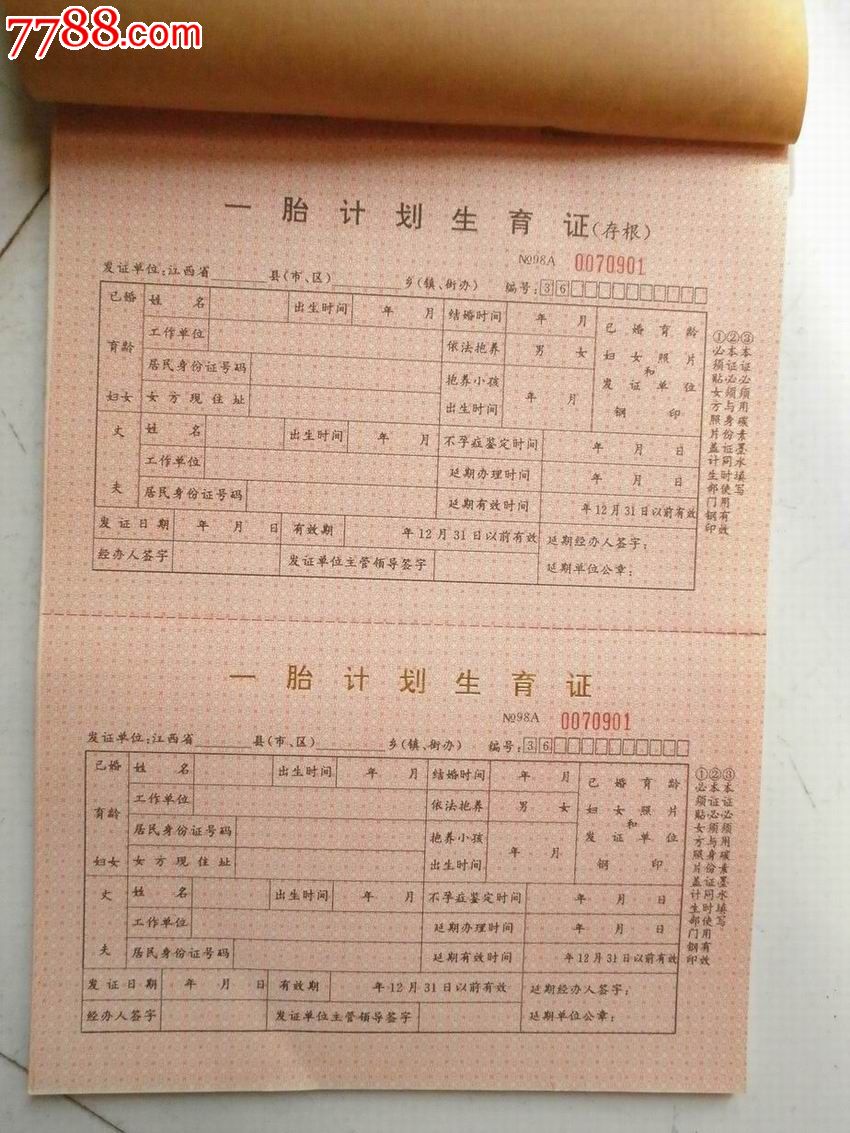 7788.com
一胎计划生育证(存根)
№98A 0070901
发证单位:江西省______县(市、区)______乡(镇、街办) 编号:36
已婚育龄妇女 姓名 出生时间 年 月 结婚时间 年 月 已婚育龄
工作单位 依法抱养 男 女 妇女照片
和
居民身份证号码 抱养小孩 发证单位
女方现住址 出生时间 年 月 钢印
丈夫 姓名 出生时间 年 月 不孕症鉴定时间 年 月 日
工作单位 延期办理时间 年 月 日
居民身份证号码 延期有效时间 年12月31日以前有效
发证日期 年 月 日 有效期 年12月31日以前有效 延期经办人签字:
经办人签字 发证单位主管领导签字 延期单位公章:
①必须贴女方照片盖计生部门钢印
②本证必须与身份证同时使用有效
③本证必须用碳素墨水填写
一胎计划生育证
№98A 0070901
发证单位:江西省______县(市、区)______乡(镇、街办) 编号:36
已婚育龄妇女 姓名 出生时间 年 月 结婚时间 年 月 已婚育龄
工作单位 依法抱养 男 女 妇女照片
和
居民身份证号码 抱养小孩 发证单位
女方现住址 出生时间 年 月 钢印
丈夫 姓名 出生时间 年 月 不孕症鉴定时间 年 月 日
工作单位 延期办理时间 年 月 日
居民身份证号码 延期有效时间 年12月31日以前有效
发证日期 年 月 日 有效期 年12月31日以前有效 延期经办人签字:
经办人签字 发证单位主管领导签字 延期单位公章:
①必须贴女方照片盖计生部门钢印
②本证必须与身份证同时使用有效
③本证必须用碳素墨水填写